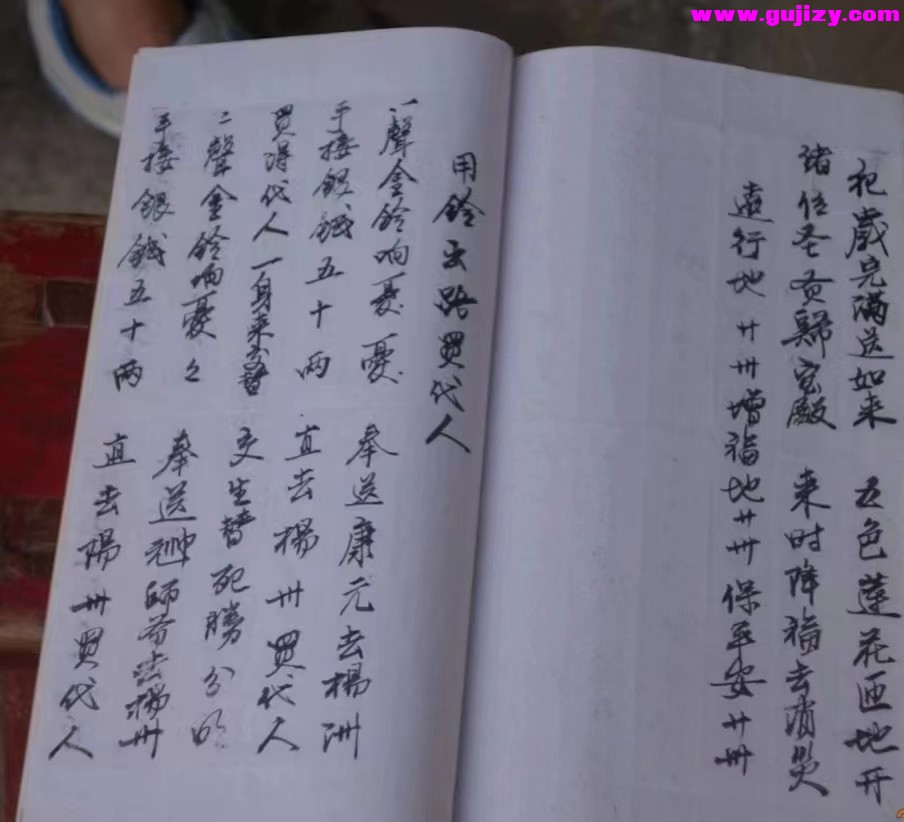 www.gujizy.com
祀戲完滿送如来 五色蓮花匝地开
诸位圣贡歸宝殿 来时降福去消災
行地 卄卅增福地卄卅 保平安卄卅
用鈴去路買代人
一聲金鈴响憂憂 奉送康元去楊洲
手接銀錢五十両 直去楊卅買代人
買得代人一身来替 交生替死勝分明
二聲金鈴响憂々 奉送禅师去楊卅
手接銀錢五十両 直去陽卅買代人